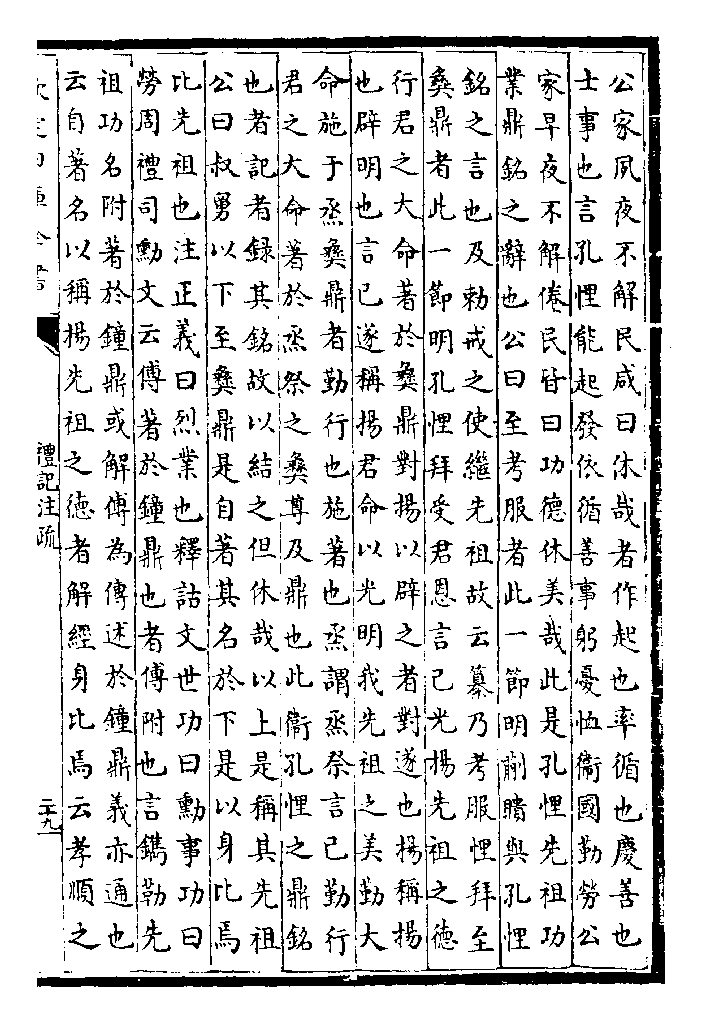 公家夙夜不解民咸曰休哉者作起也率循也慶善也
士事也言孔悝能起發依循善事躬憂恤衞國勤勞公
家早夜不解倦民皆曰功德休美哉此是孔悝先祖功
業鼎銘之辭也公曰至考服者此一節明蒯聵與孔悝
銘之言也及勑戒之使繼先祖故云纂乃考服悝拜至
彝鼎者此一節明孔悝拜受君恩言己光揚先祖之德
行君之大命著於彝鼎對揚以辟之者對遂也揚稱揚
也辟明也言已遂稱揚君命以光明我先祖之美勤大
命施于烝彝鼎者勤行也施著也烝謂烝祭言己勤行
君之大命著於烝祭之彝尊及鼎也此衞孔悝之鼎銘
也者記者錄其銘故以結之但休哉以上是稱其先祖
公曰叔舅以下至彝鼎是自著其名於下是以身比焉
比先祖也注正義曰烈業也釋詁文世功曰勳事功曰
勞周禮司勳文云傅著於鐘鼎也者傅附也言鐫勒先
祖功名附著於鐘鼎或解傅為傳述於鐘鼎義亦通也
云自著名以稱揚先祖之德者解經身比焉云孝順之
禮記注疏
二十九